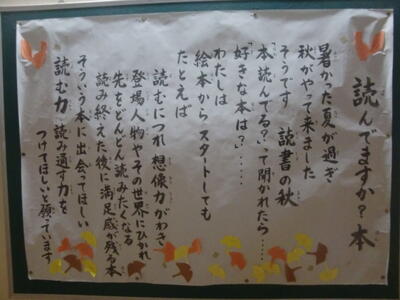 読んでますか？本
暑かった夏が過ぎ
秋がやって来ました
そうです 読書の秋
「本読んでる？」って聞かれたら……
「好きな本は？」……
わたしは
絵本からスタートしても
たとえば
読むにつれ 想像力がわき
登場人物やその世界にひかれ
先をどんどん読みたくなる
読み終えた後に満足感が残る本
そういう本に出会ってほしい
読む力 読み通す力を
つけてほしいと願っています